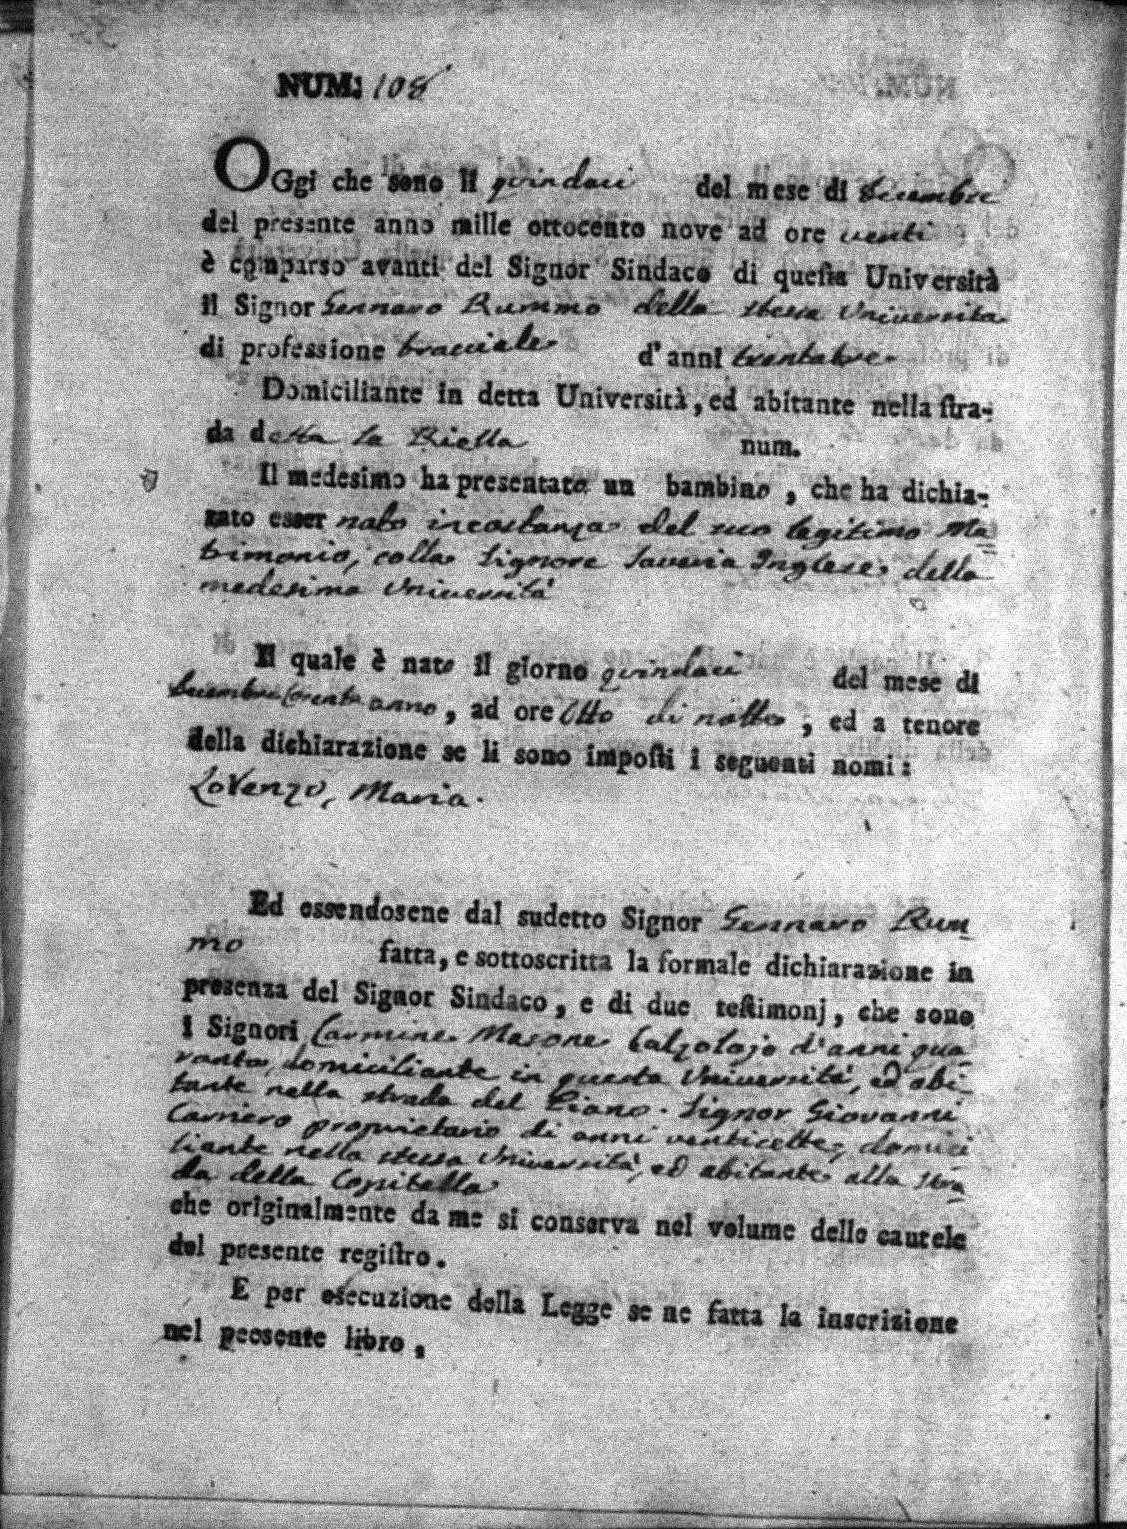 NUM: 108
OGgi che sono li quindaci del mese di Decembre
del presente anno mille ottocento nove ad ore venti
è comparso avanti del Signor Sindaco di questa Università
il Signor Gennaro Rummo della stessa Università
di professione bracciale d'anni trentatre
Domiciliante in detta Università, ed abitante nella stra-
da detta la Riella num.
Il medesimo ha presentato un bambino, che ha dichia-
rato esser nato incostanza del suo legitimo Ma
trimonio, colla Signore Saveria Inglese della
medesima Università
Il quale è nato il giorno quindaci del mese di
Decembre corente anno, ad ore Otto di notte, ed a tenore
della dichiarazione se li sono imposti i seguenti nomi:
Lorenzo, Maria.
Ed essendosene dal sudetto Signor Gennaro Rum
mo fatta, e sottoscritta la formale dichiarazione in
presenza del Signor Sindaco, e di due testimonj, che sono
i Signori Carmine Masone Calzolajo d'anni qua
ranta, domiciliante in questa Università, ed abi-
tante nella strada del Piano. Signor Giovanni
Carriero proprietario di anni venticette, domici
liante nella stessa Università, ed abitante alla stra
da della Copitella
che originalmente da me si conserva nel volume delle cautele
del presente registro.
E per esecuzione della Legge se ne fatta la inscrizione
nel peesente libro.